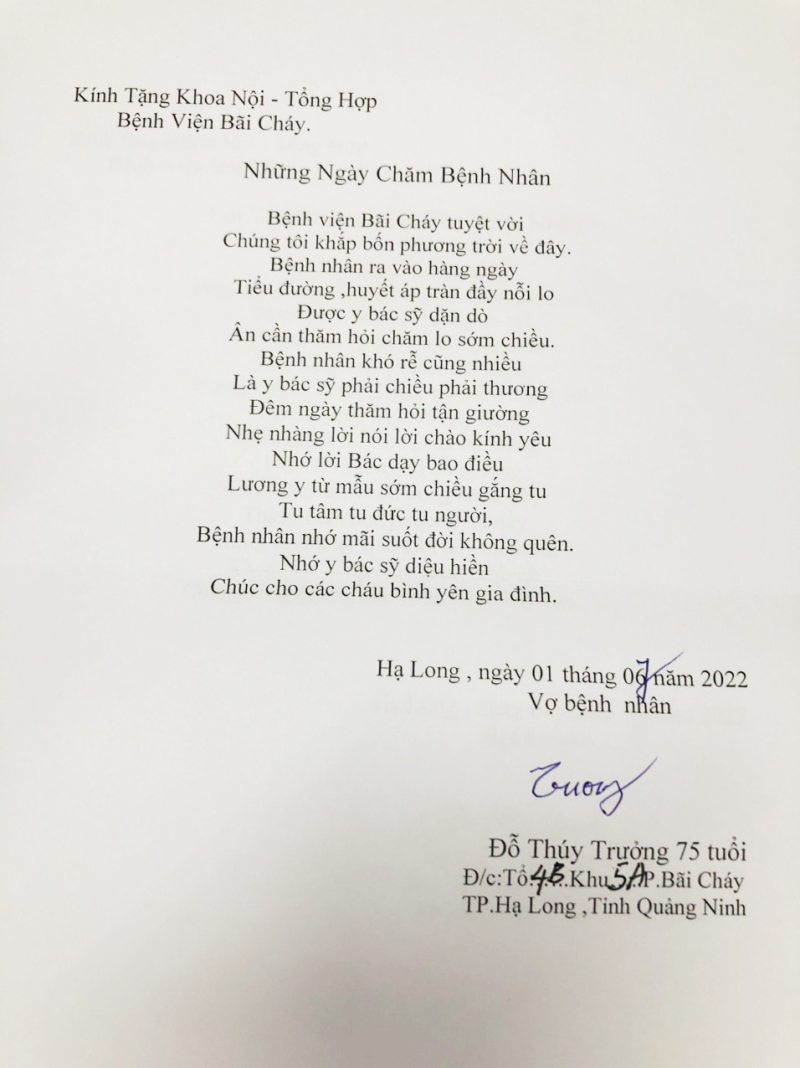 Kính Tặng Khoa Nội - Tổng Hợp
Bệnh Viện Bãi Cháy.
Những Ngày Chăm Bệnh Nhân
Bệnh viện Bãi Cháy tuyệt vời
Chúng tôi khắp bốn phương trời về đây.
Bệnh nhân ra vào hàng ngày
Tiểu đường ,huyết áp tràn đầy nỗi lo
Được y bác sỹ dặn dò
Ân cần thăm hỏi chăm lo sớm chiều.
Bệnh nhân khó rễ cũng nhiều
Là y bác sỹ phải chiều phải thương
Đêm ngày thăm hỏi tận giường
Nhẹ nhàng lời nói lời chào kính yêu
Nhớ lời Bác dạy bao điều
Lương y từ mẫu sớm chiều gắng tu
Tu tâm tu đức tu người,
Bệnh nhân nhớ mãi suốt đời không quên.
Nhớ y bác sỹ diệu hiền
Chúc cho các cháu bình yên gia đình.
Hạ Long , ngày 01 tháng 07 năm 2022
Vợ bệnh nhân
Trưởng
Đỗ Thúy Trưởng 75 tuổi
Đ/c:Tổ.4B.Khu 5A.P.Bãi Cháy
TP.Hạ Long ,Tỉnh Quảng Ninh